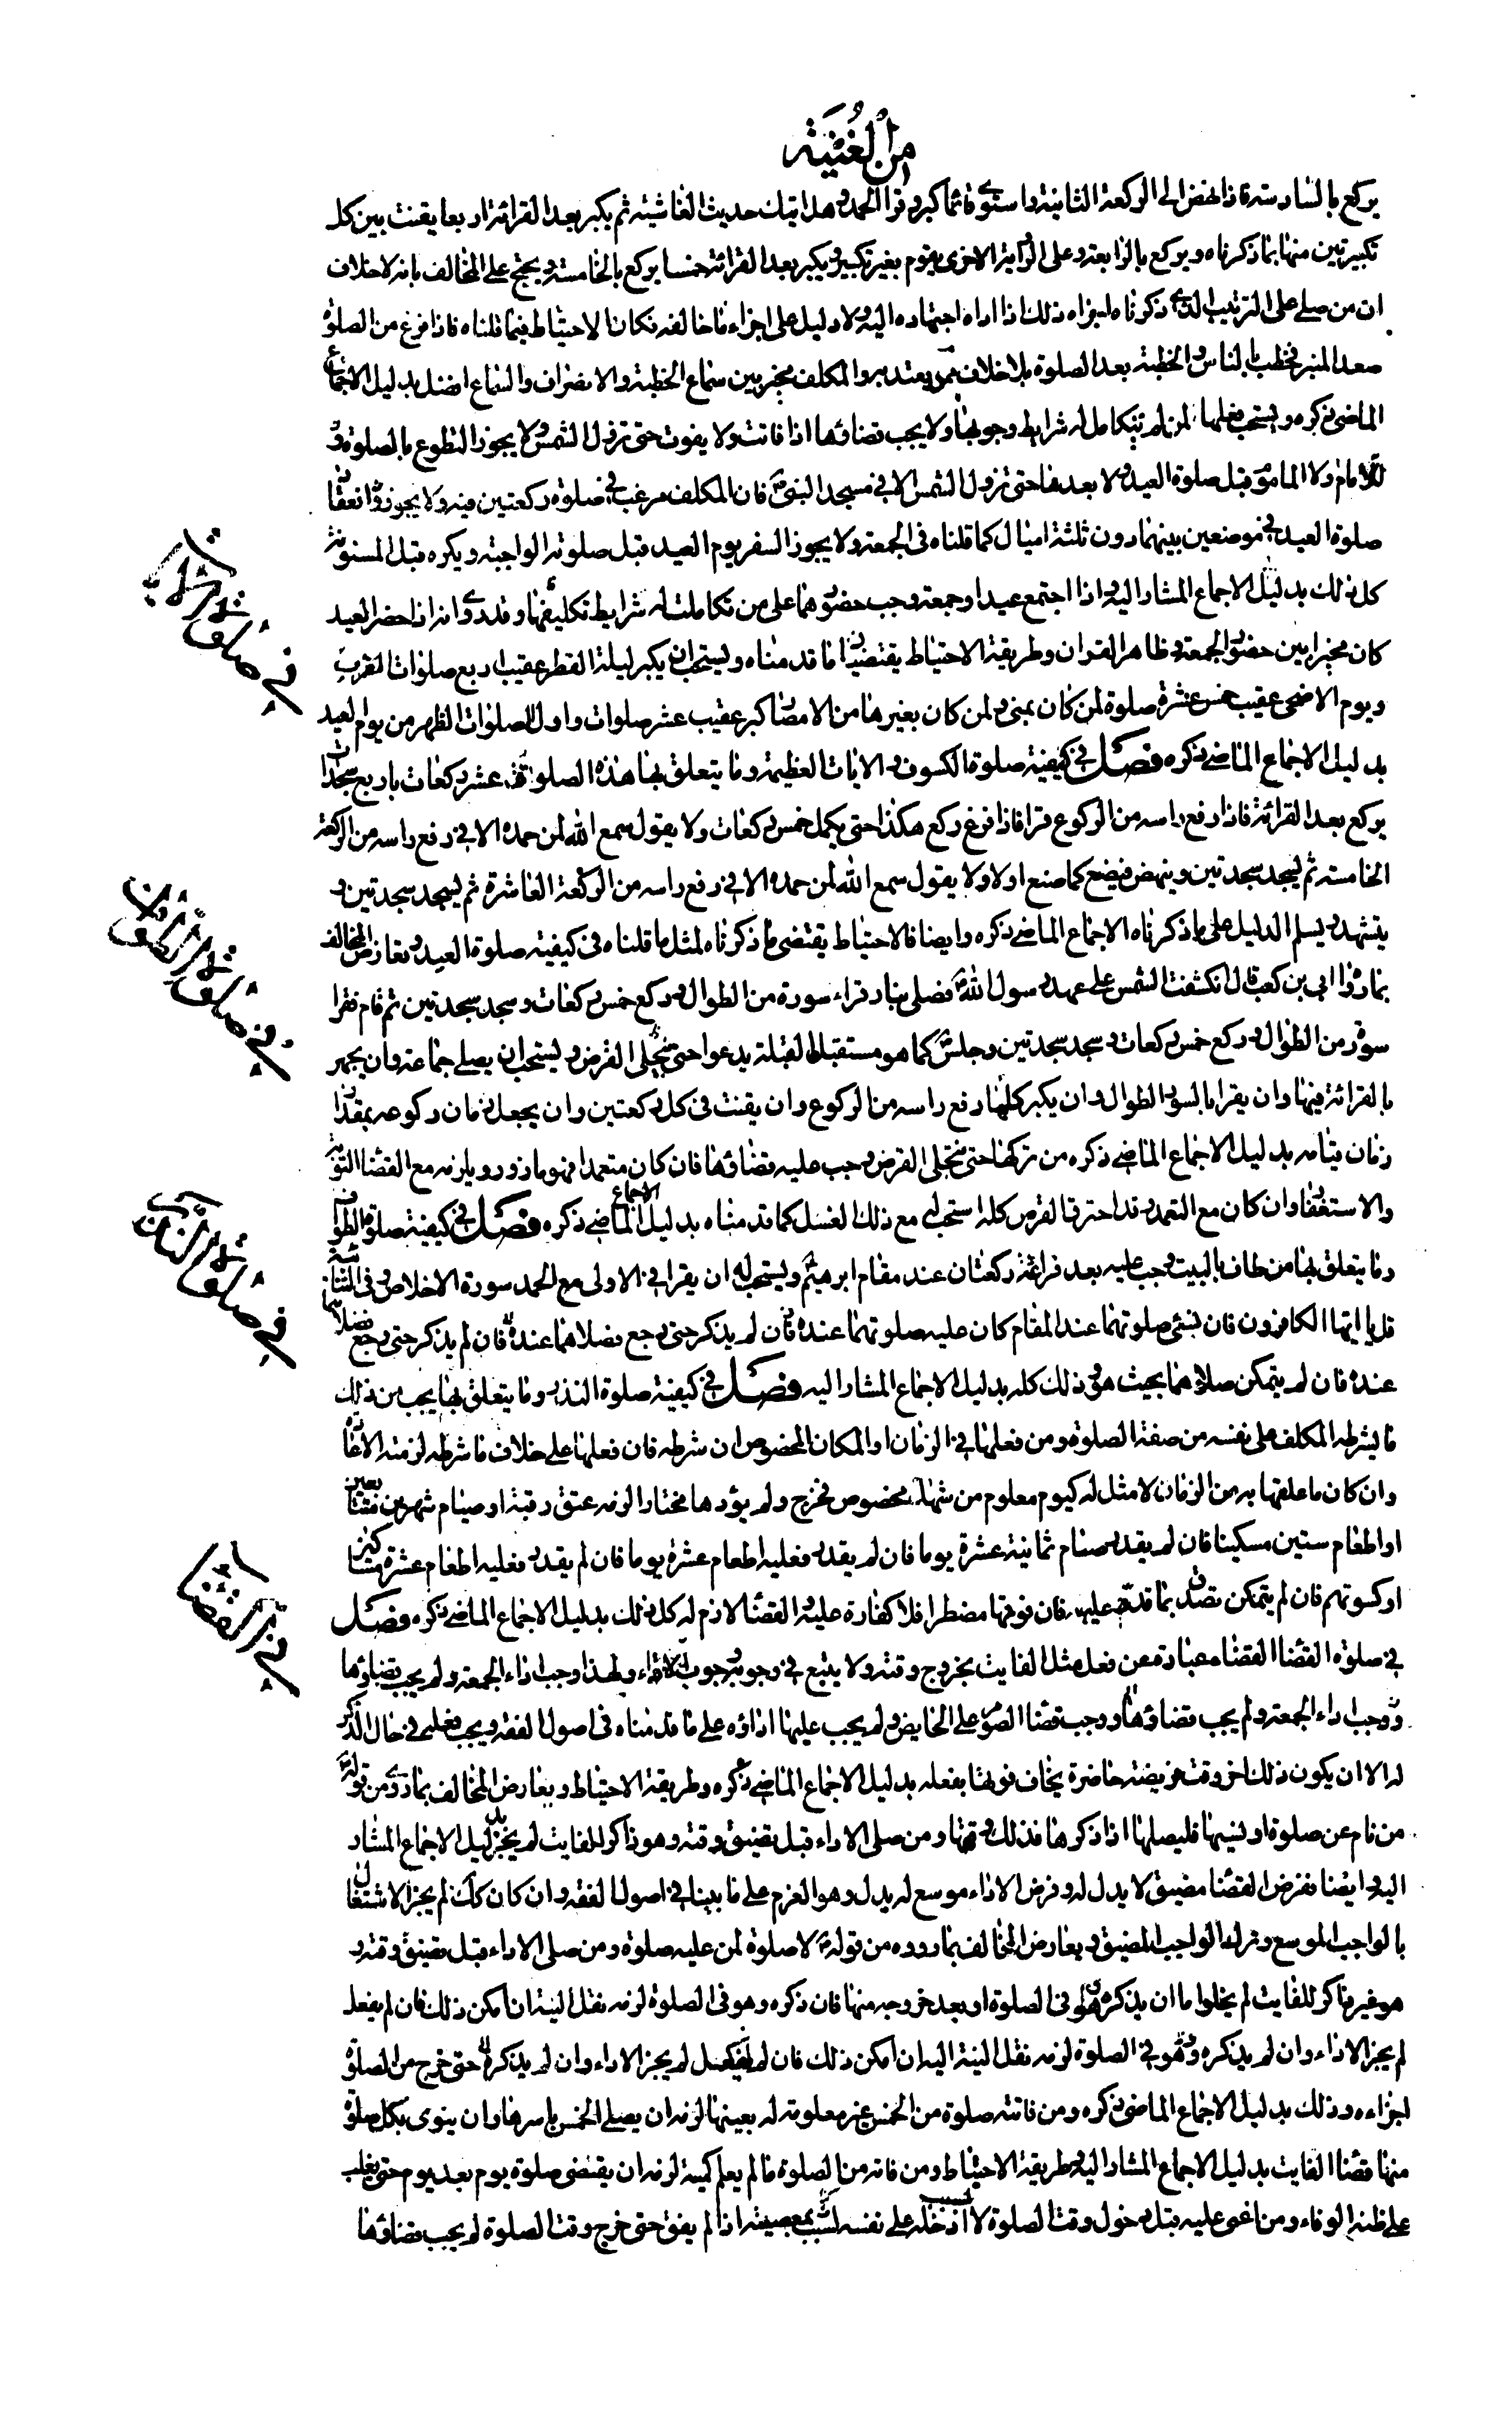 من الغنية
يركع بالسادسة فاذا نهض الى الركعة الثانية واستوى قائما كبر وقرا الحمد وهل اتيك حديث الغاشية ثم يكبر بعد القرائة اربعا يقنت بين كل
تكبيرتين منها بما ذكرناه ويركع بالرابعة وعلى الرواية الاخرى يقوم بغير تكبير ويكبر بعد القرائة خمسا يركع بالخامسة ويحتج على المخالف بانه لا خلاف
ان من صلى على الترتيب الذى ذكرناه اجزاه ذلك اذا اداه اجتهاده اليه ولا دليل على اجزاء ما خالفه فكان الاحتياط فيما قلناه فاذا فرغ من الصلوة
صعد المنبر فخطب بالناس والخطبة بعد الصلوة بلا خلاف ممن يعتد به والمكلف مخير بين سماع الخطبة والانصراف والسماع افضل بدليل الاجماع
الماضى ذكره ويستحب فعلها لمن لم يتكامل له شرايط وجوبها ولا يجب قضاؤها اذا فاتت ولا يفوت حتى تزول الشمس ولا يجوز التطوع بالصلوة
للامام ولا الماموم قبل صلوة العيد ولا بعدها حتى تزول الشمس الا فى مسجد النبى ص فان المكلف مرغب فى صلوة ركعتين فيه ولا يجوز انعقاد
صلوة العيد فى موضعين بينهما دون ثلثة اميال كما قلناه فى الجمعة ولا يجوز السفر يوم العيد قبل صلوته الواجبة ويكره قبل المسنونة
كل ذلك بدليل الاجماع المشار اليه واذا اجتمع عيد وجمعة وجب حضورهما على من تكاملت له شرايط تكليفهما وقد روى انه اذا حضر العيد
كان مخيرا بين حضور الجمعة وظاهر القران وطريقة الاحتياط يقتضيان ما قدمناه ويستحب ان يكبر ليلة الفطر عقيب اربع صلوات المغرب
ويوم الاضحى عقيب خمس عشرة صلوة لمن كان بمنى ولمن كان بغيرها من الامصار كبر عقيب عشر صلوات واول الصلوات الظهر من يوم العيد
بدليل الاجماع الماضى ذكره فصل فى كيفية صلوة الكسوف والايات العظيمة وما يتعلق بها هذه الصلوة عشر ركعات باربع سجدات
يركع بعد القرائة فاذا رفع راسه من الركوع قرا فاذا فرغ ركع هكذا حتى يكمل خمس ركعات ولا يقول سمع الله لمن حمده الا فى رفع راسه من الركعة
الخامسة ثم يسجد سجدتين وينهض فيصنع كما صنع اولا ولا يقول سمع الله لمن حمده الا فى رفع راسه من الركعة العاشرة ثم يسجد سجدتين و
يتشهد ويسلم الدليل على ما ذكرناه الاجماع الماضى ذكره وايضا فالاحتياط يقتضى ما ذكرناه لمثل ما قلناه فى كيفية صلوة العيد ونعارض المخالف
بما رواه ابى بن كعب قال انكسفت الشمس على عهد رسول الله ص فصلى بنا وقراء سورة من الطوال وركع خمس ركعات وسجد سجدتين ثم قام فقرا
سورة من الطوال وركع خمس ركعات وسجد سجدتين وجلس كما هو مستقبل القبلة يدعوا حتى تنجلى القرص ويستحب ان يصلى جماعة وان يجهر
بالقرائة فيها وان يقرا بالسور الطوال وان يكبر كلما رفع راسه من الركوع وان يقنت فى كل ركعتين وان يجعل زمان ركوعه بمقدار
زمان قيامه بدليل الاجماع الماضى ذكره من تركها حتى تنجلى القرص وجب عليه قضاؤها فان كان متعمدا فهو مازور ويلزمه مع القضا التوبة
والاستغفار وان كان مع التعمد قد احترق القرص كله استحب له مع ذلك الغسل كما قدمناه بدليل الاجماع الماضى ذكره فصل فى كيفية صلوة الطواف
وما يتعلق بها من طاف بالبيت وجب عليه بعد فراغه ركعتان عند مقام ابرهيم ويستحب له ان يقرا فى الاولى مع الحمد سورة الاخلاص وفى الثانية
قل يا ايها الكافرون فان نسى صلوتهما عند المقام كان عليه صلوتهما عنده فان لم يذكر حتى رجع فصلاهما عنده فان لم يذكر حتى رجع فصلاهما
عنده فان لم يتمكن صلاهما بحيث هو ذلك كله بدليل الاجماع المشار اليه فصل فى كيفية صلوة النذر وما يتعلق بها يجب من ذلك
ما يشرطه المكلف على نفسه من صفة الصلوة ومن فعلها فى الزمان او المكان المخصوص ان شرطه فان فعلها على خلاف ما شرطه لزمته الاعادة
وان كان ما علقها به من الزمان لا مثل له كيوم معلوم من شهر مخصوص فخرج ولم يؤدها مختارا لزمه عتق رقبة او صيام شهرين متتابعين
او اطعام ستين مسكينا فان لم يقدر صام ثمانية عشرة يوما فان لم يقدر فعليه اطعام عشرة يوما فان لم يقدر فعليه اطعام عشرة مساكين
او كسوتهم فان لم يتمكن تصدق بما قدر عليه فان فوتها مضطرا فلا كفارة عليه والقضا لازم له كل ذلك بدليل الاجماع الماضى ذكره فصل
فى صلوة القضا القضا عبارة عن فعل مثل الفايت بخروج وقته ولا يتبع فى وجوبه وجوب الاداء ولهذا وجب اداء الجمعة ولم يجب قضاؤها
ووجب اداء الجمعة ولم يجب قضاؤها ووجب قضا الصوم على الحايض ولم يجب عليها اداؤه على ما قدمناه فى اصول الفقه ويجب فعله فى حال الذكر
له الا ان يكون ذلك اخر وقت فريضة حاضرة يخاف فوتها بفعله بدليل الاجماع الماضى ذكره وطريقة الاحتياط ويعارض المخالف بما روى من قوله
من نام عن صلوة او نسيها فليصلها اذا ذكرها فذلك وقتها ومن صلى الاداء قبل تضيق وقته وهو ذاكر للفايت لم يجز بدليل الاجماع المشار
اليه وايضا ففرض القضا مضيق لا بدل له وفرض الاداء موسع له بدل وهو العزم على ما بينا فى اصول الفقه وان كان كك لم يجز الاشتغال
بالواجب الموسع وترك الواجب المضيق ويعارض المخالف بما رووه من قوله لا صلوة لمن عليه صلوة ومن صلى الاداء قبل تضيق وقته و
هو غير ذاكر للفايت لم يخلوا ما ان يذكره وهو فى الصلوة او بعد خروجه منها فان ذكره وهو فى الصلوة لزمه نقل النية ان امكن ذلك فان لم يفعل
لم يجز الاداء وان لم يذكره وهو فى الصلوة لزمه نقل النية اليه ان امكن ذلك فان لم يفعل لم يجز الاداء وان لم يذكره حتى خرج من الصلوة
اجزاءه وذلك بدليل الاجماع الماضى ذكره ومن فاتته صلوة من الخمس غير معلومة له بعينها لزمه ان يصلى الخمس باسرها وان ينوى بكل صلوة
منها قضا الفايت بدليل الاجماع المشار اليه وطريقة الاحتياط ومن فاته من الصلوة ما لم يعلم كميته لزمه ان يقضى صلوة يوم بعد يوم حتى يغلب
على ظنه الوفاء ومن اغمى عليه قبل دخول وقت الصلوة لا ادخله على نفسه بسبب بمعصية اذا لم يفق حتى خرج وقت الصلوة لم يجب قضاؤها
فى صلوة
فى صلوة الطواف
فى صلوة
فى القضا